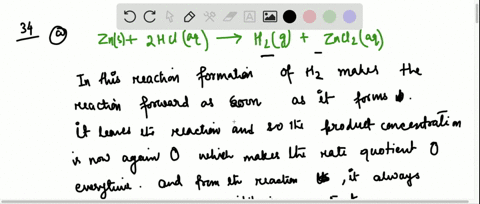 34 (a) Zn(s) + 2HCl(aq) → H₂(g) + ZnCl₂(aq)
In this reaction formation of H₂ makes the
reaction forward as soon as it forms.
it leaves the reaction and so the product concentration
is now again 0 which makes the rate quotient 0
everytime. and from the reaction, it always